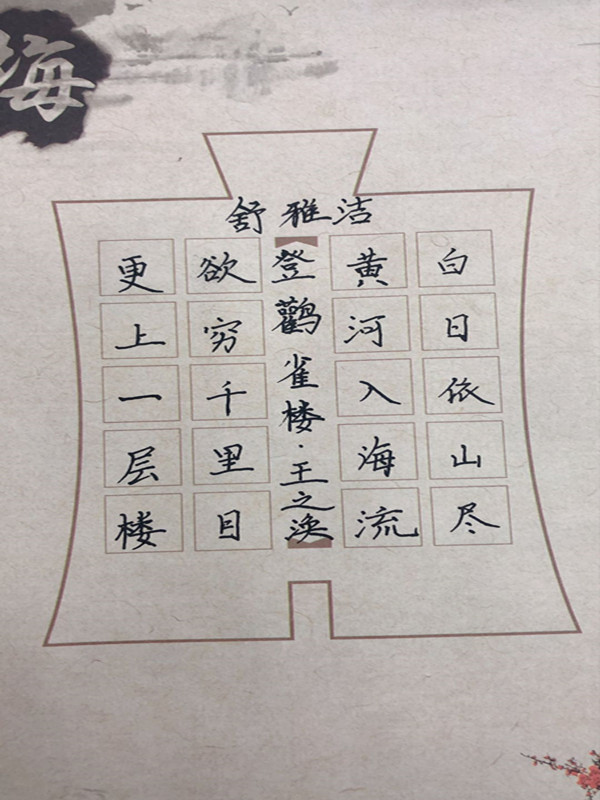 海
舒雅洁
白日依山尽
黄河入海流
登鹳雀楼·王之涣
欲穷千里目
更上一层楼